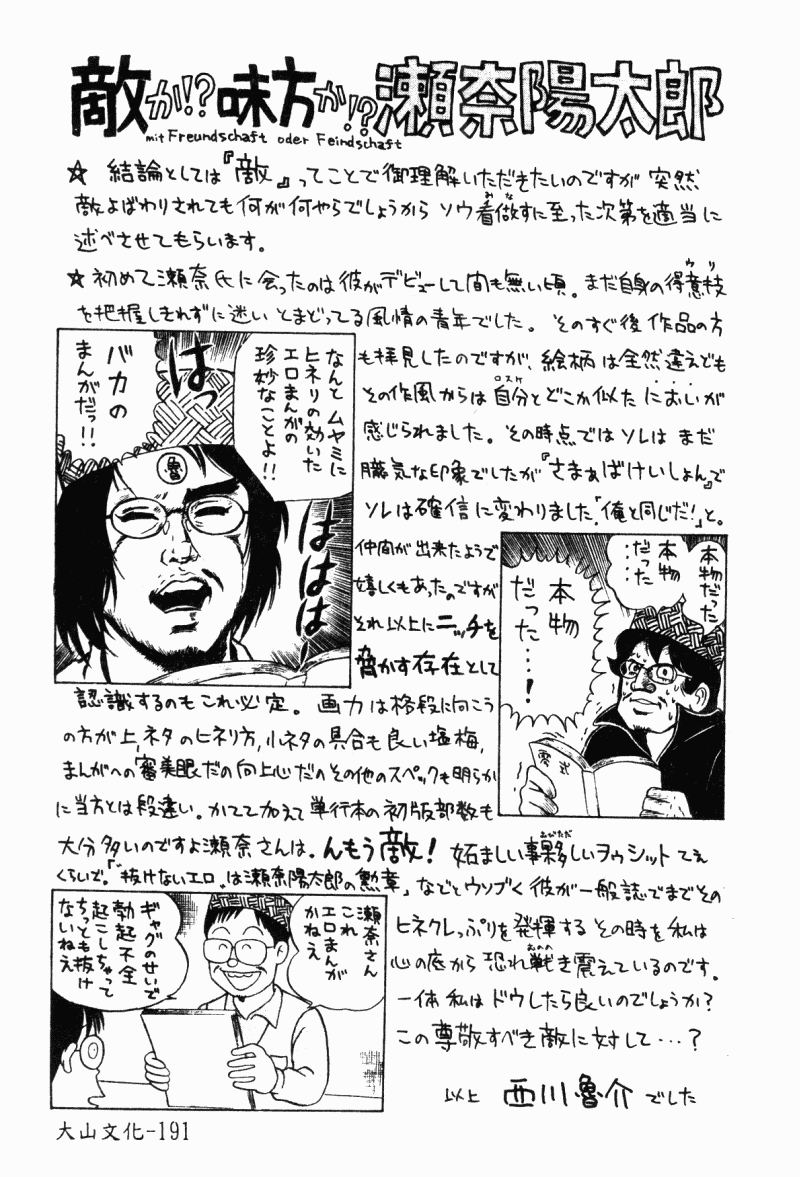 敵か!?味方か!?瀬奈陽太郎
mit Freundschaft oder Feindschaft
☆ 結論としては『敵』ってことで御理解いただきたいのですが 突然
敵よばわりされても何が何やらでしょうから ソウ着做すに至った次第を適当に
みな
述べさせてもらいます。
☆ 初めて瀬奈氏に会ったのは彼がデビューして間も無い頃。まだ自身の得意技
ウリ
を把握しきれずに迷い とまどってる風情の青年でした。そのすぐ後 作品の方
も拝見したのですが、絵柄は全然違えども
その作風からは自分とどこか似たにおいが
ロスケ
感じられました。その時点ではソレはまだ
朧気な印象でしたが『さまぁばけいしょん』で
ソレは確信に変わりました「俺と同じだ!」と。
仲間が出来たようで
嬉しくもあったのですが
それ以上にニッチを
脅かす存在として
認識するのもこれ必定。画力は格段に向こう
の方が上、ネタのヒネリ方、小ネタの具合も良い塩梅、
まんがへの審美眼だの向上心だのその他のスペックも明らか
に当方とは段違い。かてて加えて単行本の初版部数も
大分多いのですよ瀬奈さんは。んもう敵! 妬ましい事夥しいヲゥシットてえ
おびただ
くらいで。「抜けないエロは瀬奈陽太郎の勲章」などとウソブく彼が一般誌でまでその
ヒネクレっぷりを発揮するその時を私は
心の底から恐れ戦き震えているのです。
おのの
一体私はドウしたら良いのでしょうか?
この尊敬すべき敵に対して…?
以上 西川魯介でした
なんとムヤミに
ヒネリの効いた
エロまんがの
珍妙なことよ!!
はっ
ははは
バカの
まんがだっ!!
魯
本物だった
本物
だった
……
本物
だった…!
零式
瀬奈さん
これ
エロまんが
かねえ
ギャグのせいで
勃起不全
起こしちゃって
ちっとも抜け
ないねえ
大山文化-191